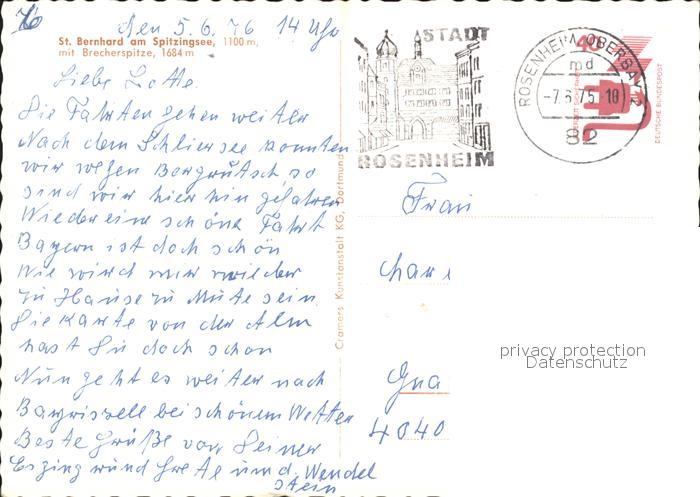 76 den 5.6.76 14 Uhr
St. Bernhard am Spitzingsee, 1100 m,
mit Brecherspitze, 1684 m
Liebe Lotte
Die Fahrten gehen weiter
Nach dem Schliersee konnten
wir wegen Bergrutsch so
sind wir hier hin gefahren
Wieder eine schöne Fahrt
Bayern ist doch schön
Wie wird mir wieder
zu Hause zu Mute sein
Die Karte von der Alm
hast Du doch schon
Nun geht es weiter nach
bei schönem Wetter
Beste Grüße von Deiner
und Grete und Wendel
stein
Cramers Kunstanstalt KG, Dortmund
STADT
ROSENHEIM
ROSENHEIM, OBERBAY 12
md
-7.6.75.18
82
40
DEUTSCHE BUNDESPOST
Frau
4040
privacy protection
Datenschutz